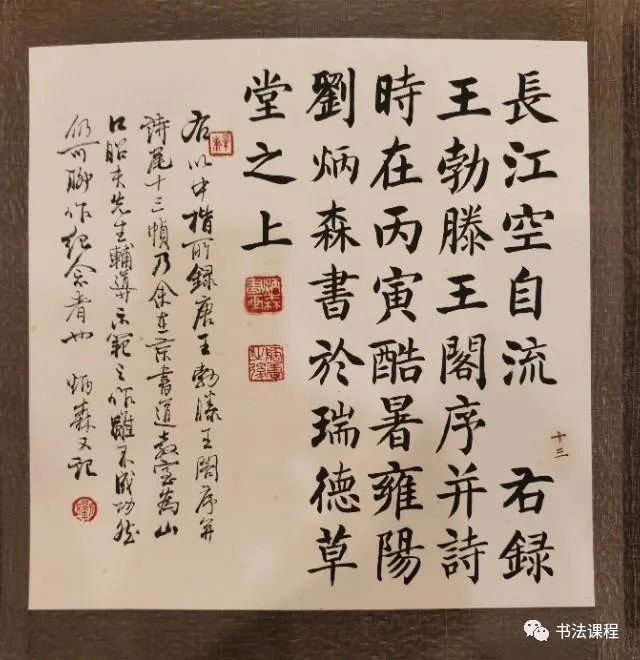 長江空自流 右録
王勃滕王閣序并詩
時在丙寅酷暑雍陽
劉炳森書於瑞德草
堂之上
十三
右以中楷所録唐王勃滕王閣序并
詩尾十三幀乃余在京書道教室為山
口昭夫先生輔導示範之作雖不成功然
仍可聊作紀念者也 炳森又記
书法课程